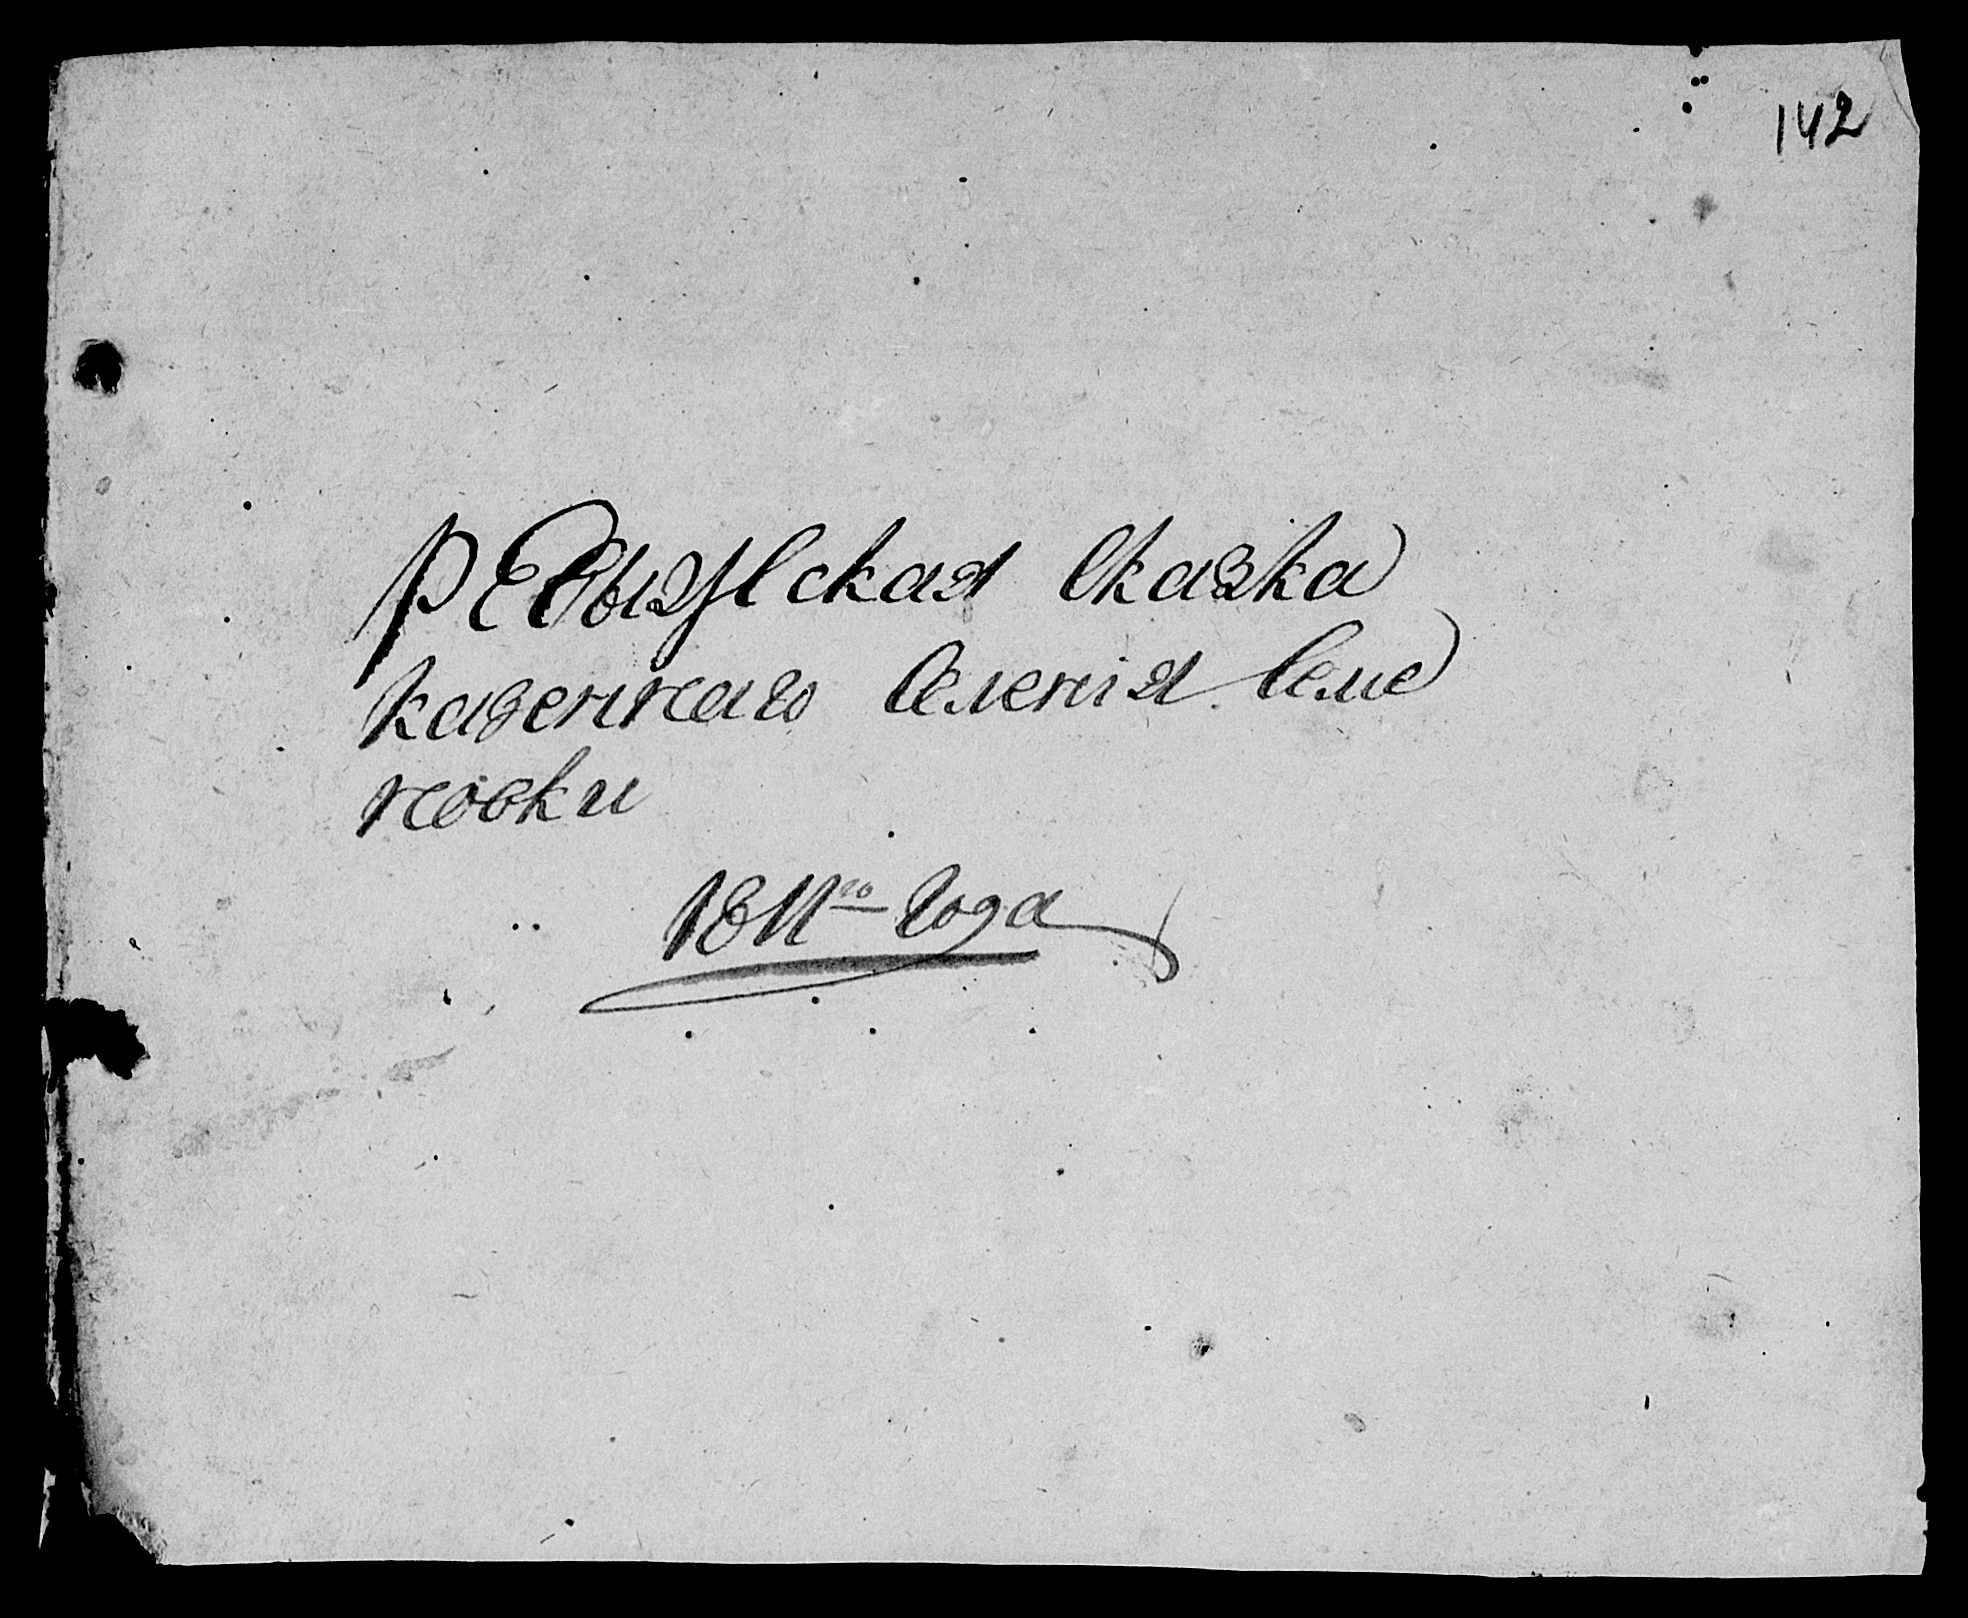 142
РЕвизская сказка
казеннаго селенія Семе
новки
1811го года